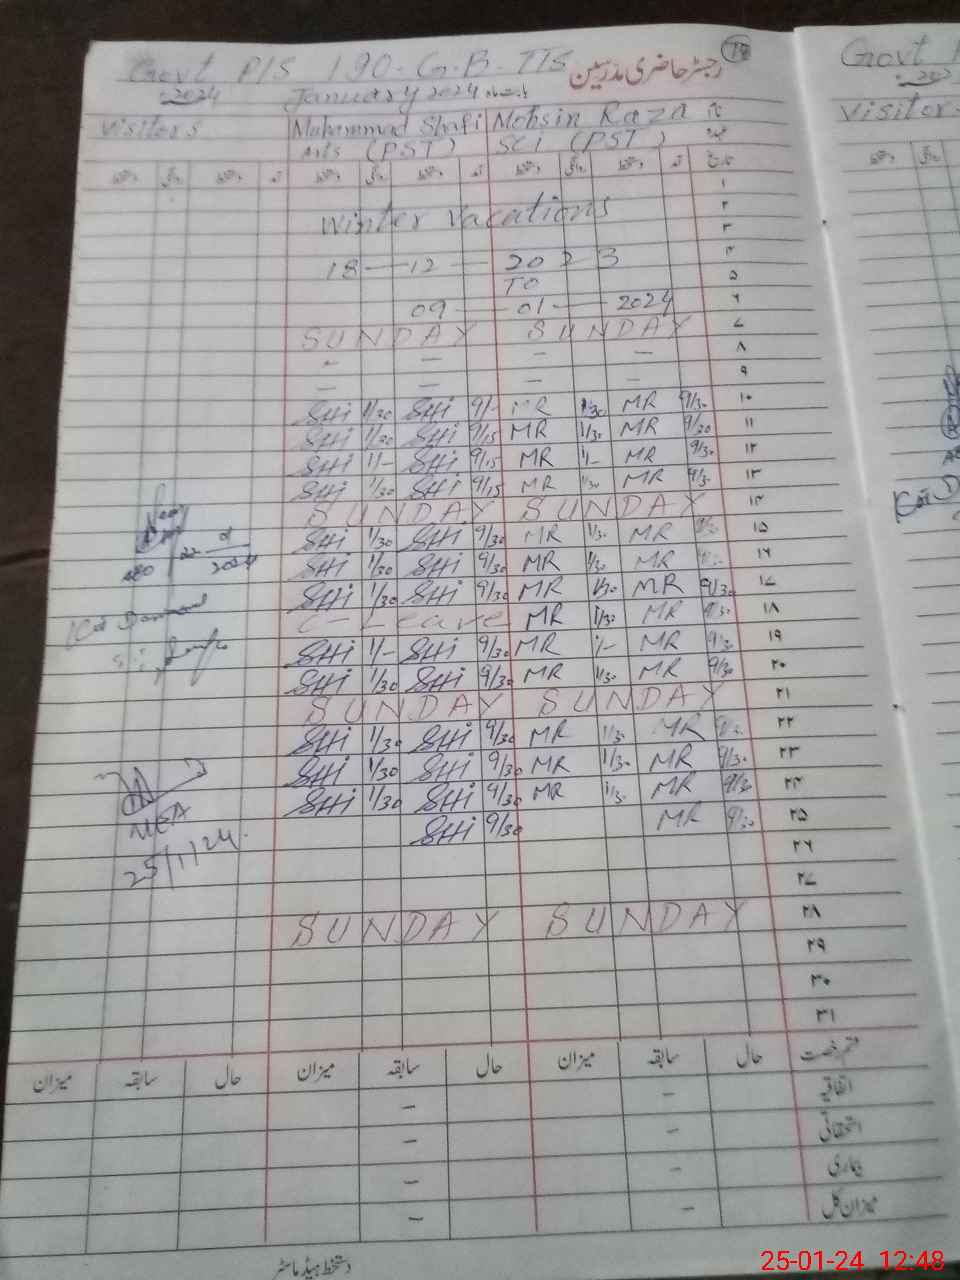 Govt P/S 190-G.B-TTS رجسٹر حاضری مدرسین
2024 January 2024
Visitors Muhammad Shafi Mohsin Raza
Arts (PST) SCI (PST)
تاریخ
۱
Winter Vacations ۲
۳
18—12—2023 ۴
TO ۵
09—01—2024 ۶
SUNDAY SUNDAY ۷
- - - - ۸
- - - - ۹
SHi 1/30 SHi 9/- MR 1/30 MR 9/30 ۱۰
SHi 1/30 SHi 9/15 MR 1/30 MR 9/30 ۱۱
SHi 1/- SHi 9/15 MR 1/- MR 9/30 ۱۲
SHi 1/30 SHi 9/15 MR 1/30 MR 9/30 ۱۳
SUNDAY SUNDAY ۱۴
SHi 1/30 SHi 9/30 MR 1/30 MR 9/30 ۱۵
SHi 1/30 SHi 9/30 MR 1/30 MR ۱۶
SHi 1/30 SHi 9/30 MR 1/30 MR 9/30 ۱۷
C-Leave MR 1/30 MR 9/30 ۱۸
SHi 1/- SHi 9/30 MR 1/- MR 9/30 ۱۹
SHi 1/30 SHi 9/30 MR 1/30 MR 9/30 ۲۰
SUNDAY SUNDAY ۲۱
SHi 1/30 SHi 9/30 MR 1/30 MR ۲۲
SHi 1/30 SHi 9/30 MR 1/30 MR 9/30 ۲۳
SHi 1/30 SHi 9/30 MR 1/30 MR 9/30 ۲۴
SHi 9/30 MR 9/30 ۲۵
۲۶
۲۷
SUNDAY SUNDAY ۲۸
۲۹
۳۰
۳۱
2024
MEA
25/1/24
میزان سابقہ حال میزان سابقہ حال میزان سابقہ حال قسم رخصت
- - اتفاقیہ
- - استحقاقی
- - بیماری
- - میزان کل
دستخط ہیڈ ماسٹر
Visitor
25-01-24 12:48